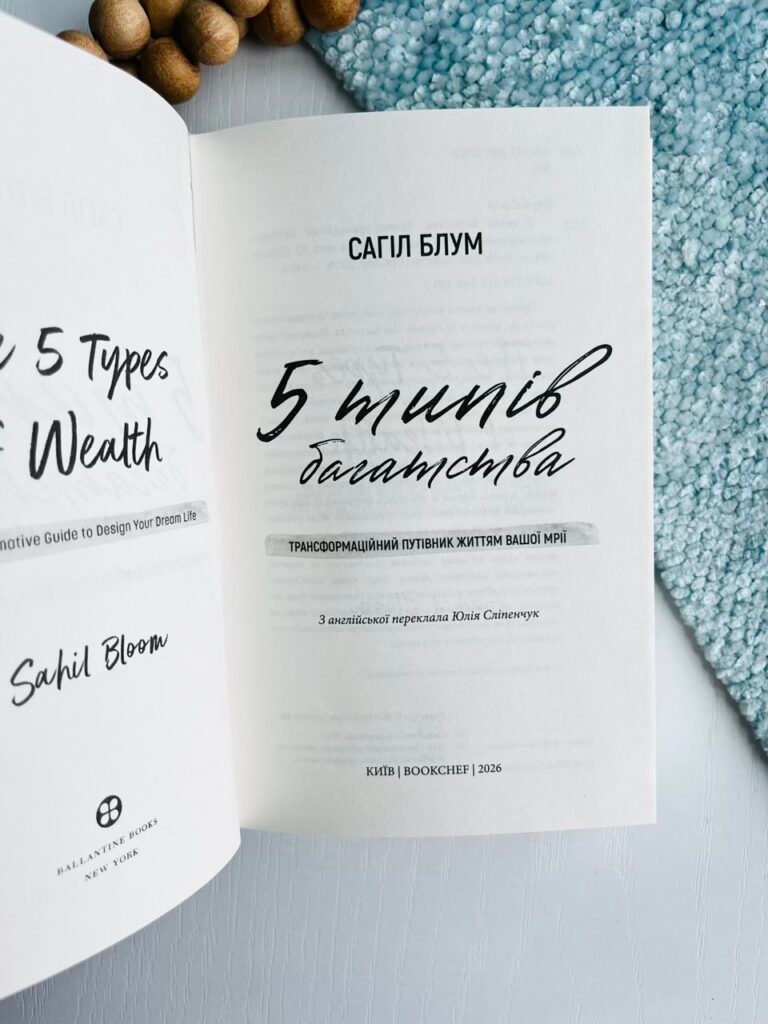 5 Types
Wealth
Guide to Design Your Dream Life
Sahil Bloom
BALLANTINE BOOKS
NEW YORK
САГІЛ БЛУМ
5 типів
багатства
ТРАНСФОРМАЦІЙНИЙ ПУТІВНИК ЖИТТЯМ ВАШОЇ МРІЇ
З англійської переклала Юлія Сліпенчук
КИЇВ | BOOKCHEF | 2026